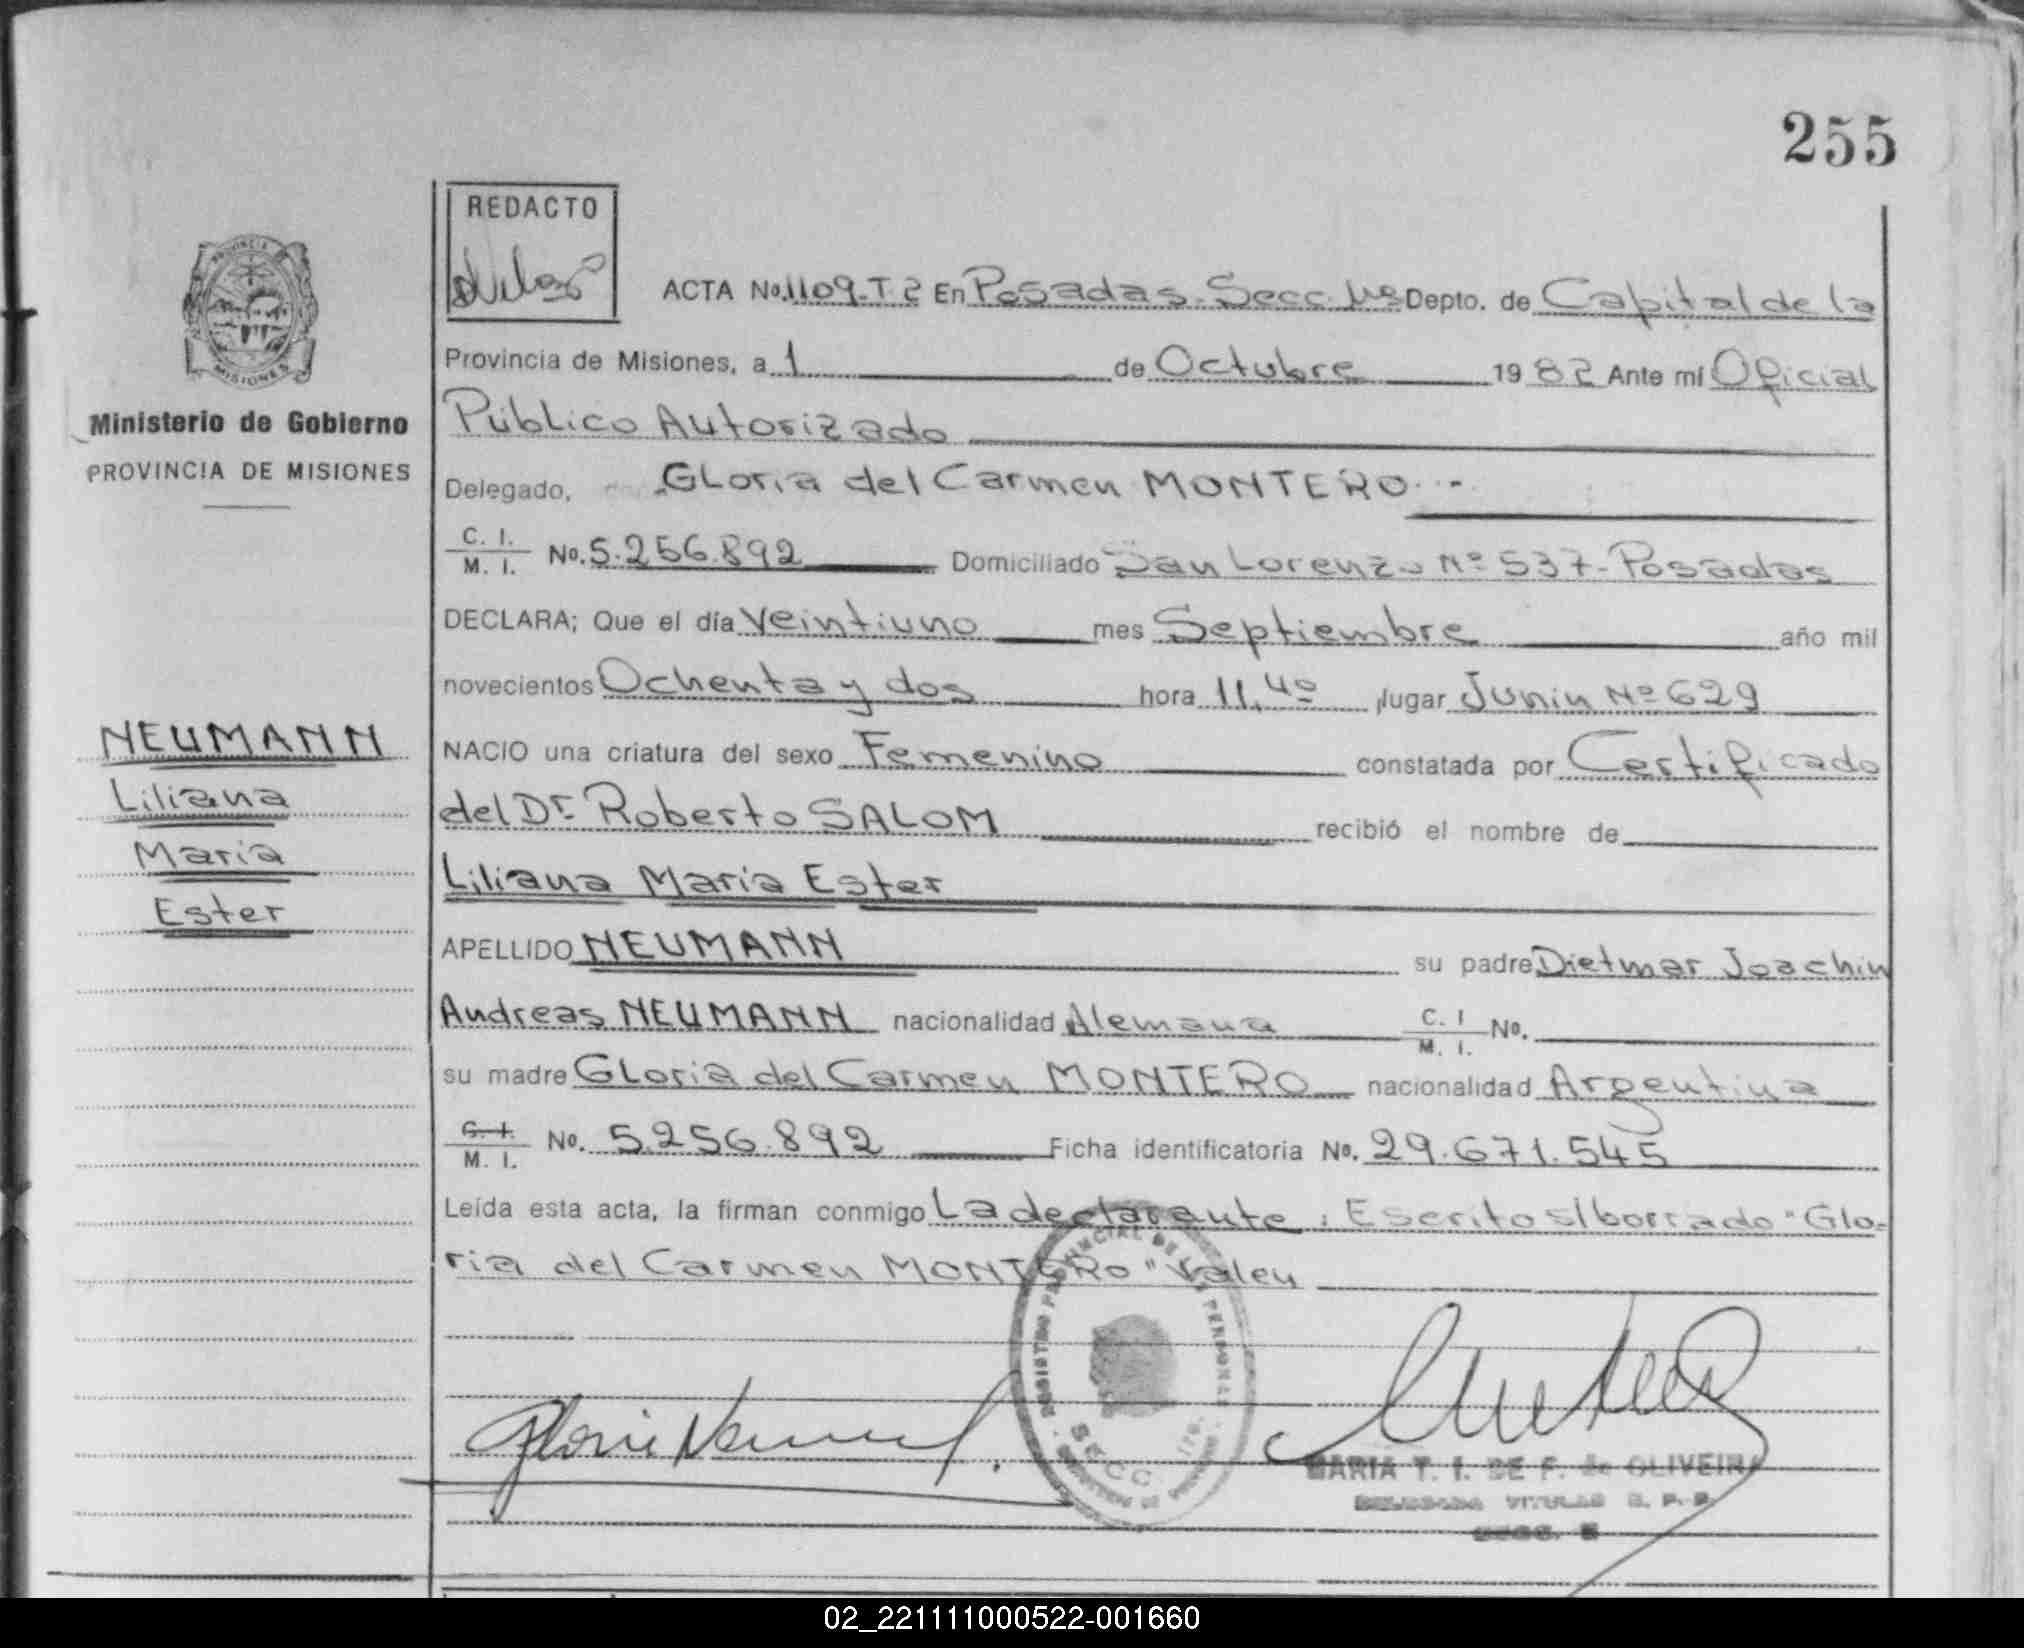 255
REDACTO
PROVINCIA
MISIONES
Ministerio de Gobierno
PROVINCIA DE MISIONES
NEUMANN
Liliana
Maria
Ester
ACTA No. 1109-T2 En Posadas Secc. Depto. de Capital de la
Provincia de Misiones, a 1 de Octubre 1982 Ante mí Oficial
Público Autorizado
Delegado, Gloria del Carmen MONTERO.-
C. I. M. I. No. 5.256.892 Domiciliado San Lorenzo Nº 537-Posadas
DECLARA; Que el día Veintiuno mes Septiembre año mil
novecientos Ochenta y dos hora 11,40 lugar Junin Nº 629
NACIO una criatura del sexo Femenino constatada por Certificado
del Dr. Roberto SALOM recibió el nombre de
Liliana Maria Ester
APELLIDO NEUMANN su padre Dietmar Joachin
Andreas NEUMANN nacionalidad Alemana C. I M. I. No.
su madre Gloria del Carmen MONTERO nacionalidad Argentina
C. I. M. I. No. 5.256.892 Ficha identificatoria No. 29.671.545
Leída esta acta, la firman conmigo La declarante. Escrito s/borrado "Glo-
ria del Carmen MONTERO" Valen
REGISTRO PROVINCIAL DE LAS PERSONAS
SECC.
MARIA T. I. DE F. de OLIVEIRA
DELEGADA TITULAR R. P. P.
SECC.
02_221111000522-001660